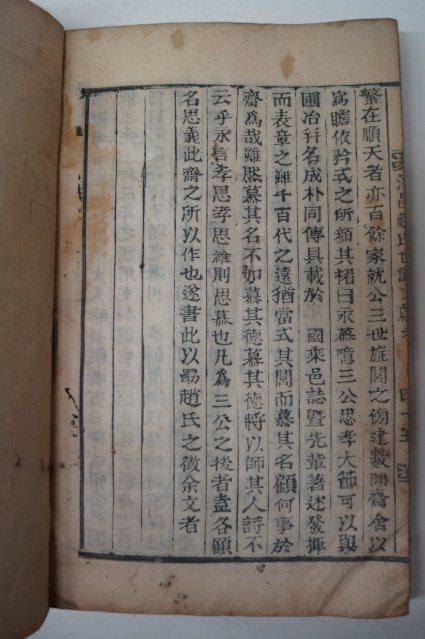 繁在順天者亦百餘家就公三世旌閭之傍建數間齋舍以
寓瞻依矜式之所顏其楣曰永慕噫三公忠孝大節可以與
圃冶幷名成朴同傳具載於 國乘邑誌曁先輩著述發揮
而表章之雖千百代之遠猶當式其閭而慕其名顧何事於
齋爲哉雖然慕其名不如慕其德慕其德將以師其人詩不
云乎永言孝思孝思維則思慕也凡爲三公之後者盍各顧
名思義此齋之所以作也遂書此以勖趙氏之徵余文者
趙氏世譜